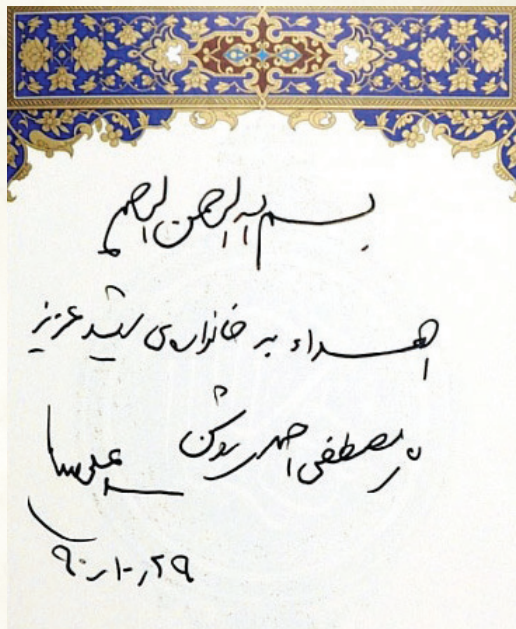 بسم الله الرحمن الرحیم
اهداء به خانواده‌ی شهید عزیز
مصطفی احمدی روشن
سیدعلی
۹۰/۱۰/۲۹